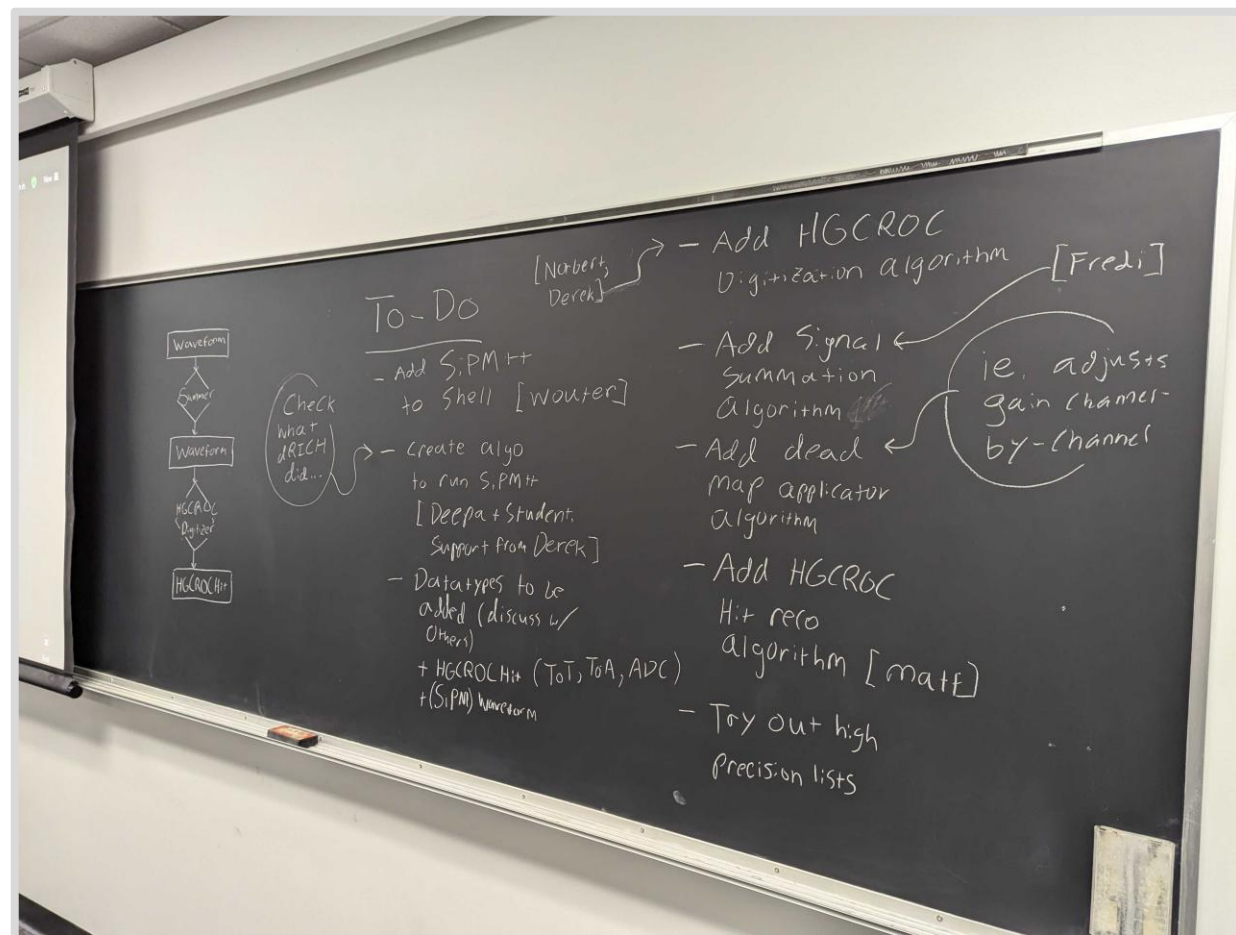 Waveform
Summer
Waveform
HGCROC
Digitizer
HGCROCHit
Check
what
dRICH
did...
To-Do
- Add SiPM++
to Shell [Wouter]
- Create algo
to run SiPM++
[Deepa + Student,
Support from Derek]
- Datatypes to be
added (discuss w/
Others)
+ HGCROCHit (ToT, ToA, ADC)
+ (SiPM) Waveform
[Norbert,
Derek]
- Add HGCROC
Digitization algorithm
[Fredi]
- Add Signal
Summation
algorithm
- Add dead
map applicator
algorithm
ie. adjusts
gain channel-
by-channel
- Add HGCROC
Hit reco
algorithm [matt]
- Try out high
precision lists